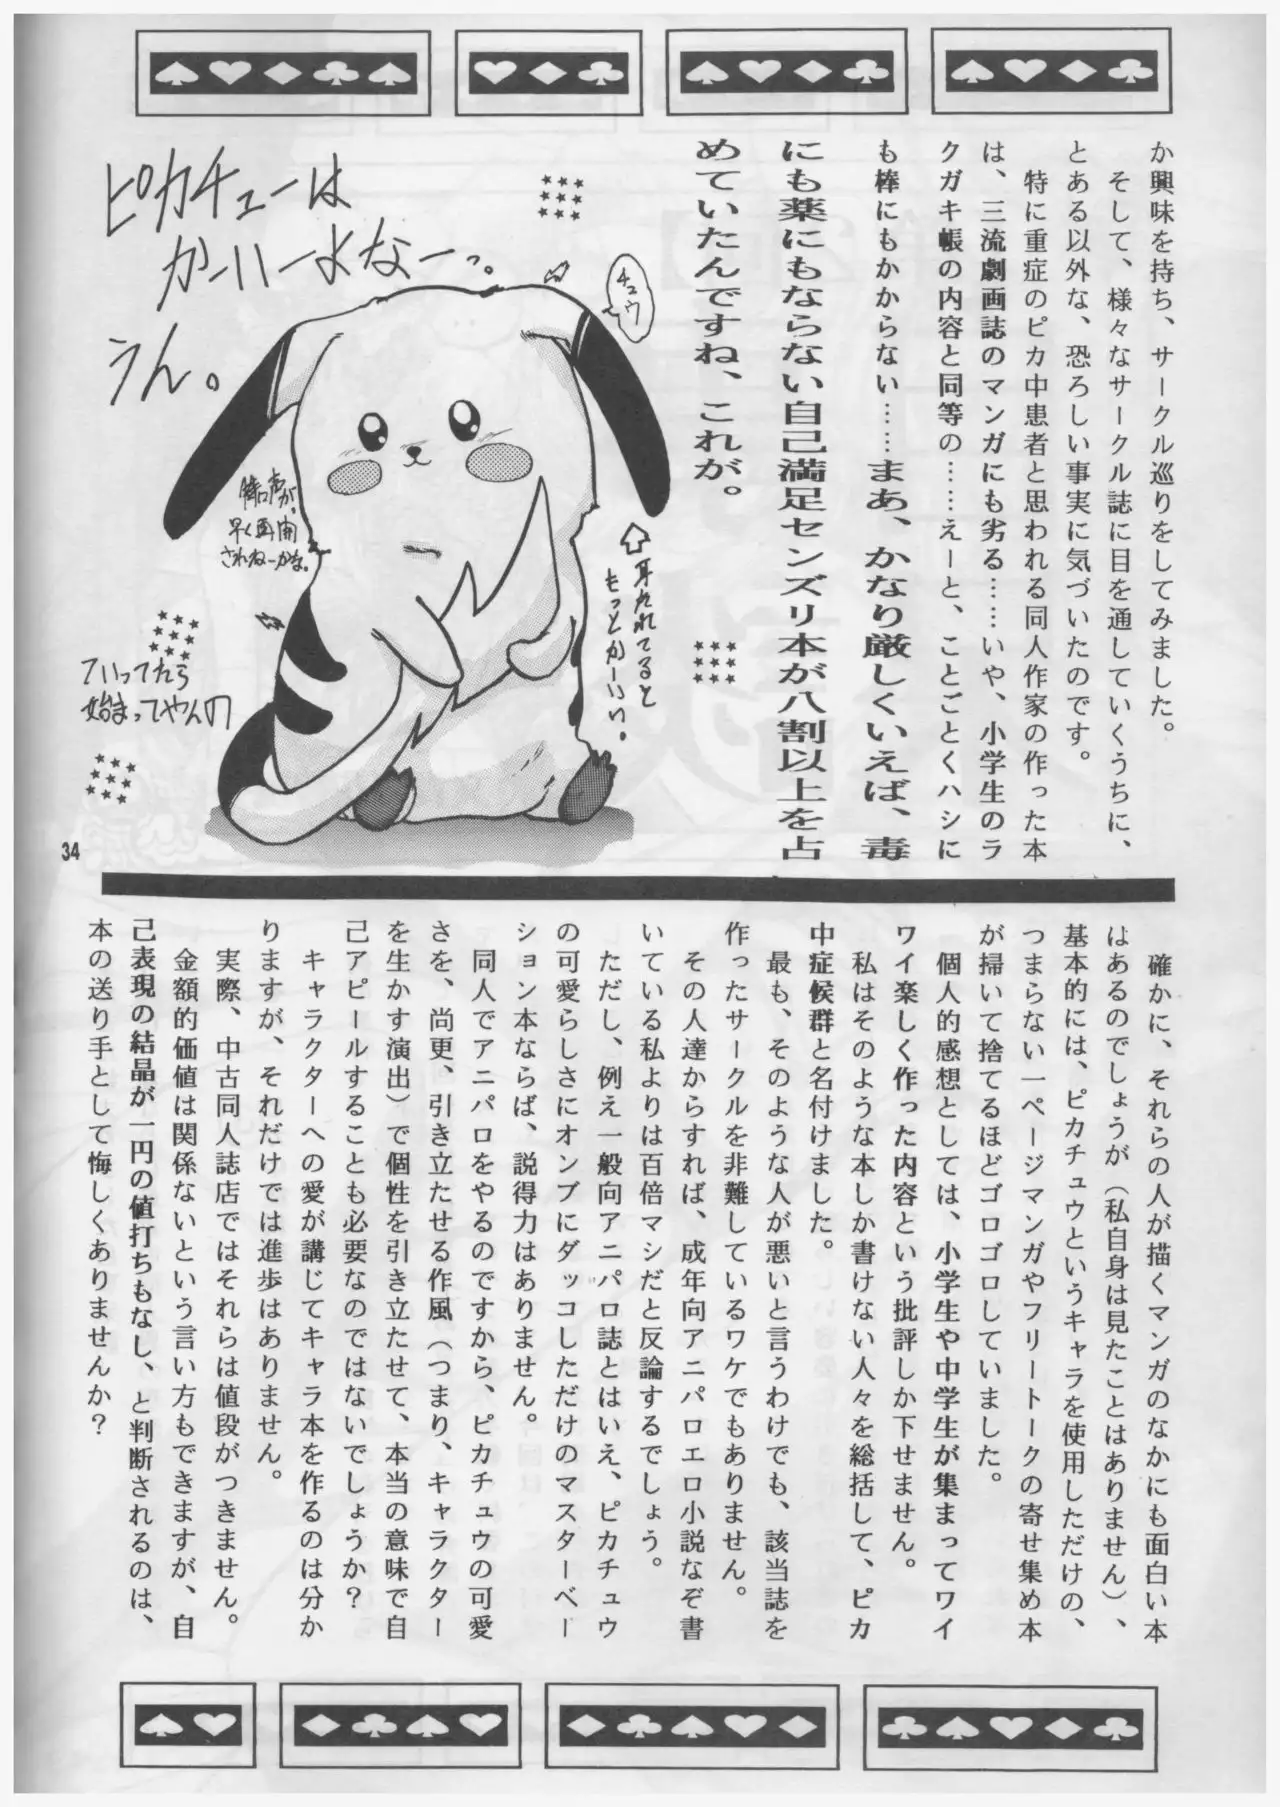 か興味を持ち、サークル巡りをしてみました。
そして、様々なサークル誌に目を通していくうちに、
とある以外な、恐ろしい事実に気づいたのです。
特に重症のピカ中患者と思われる同人作家の作った本
は、三流劇画誌のマンガにも劣る……いや、小学生のラ
クガキ帳の内容と同等の……えーと、ことごとくハシに
も棒にもかからない……まあ、かなり厳しくいえば、毒
にも薬にもならない自己満足センズリ本が八割以上を占
めていたんですね、これが。
チュウ
ピカチューは
かーいーよなーっ。
うん。
耳たれてると
もっとかーいい。
早く再開
されねーかな。
始まってやんの
34
確かに、それらの人が描くマンガのなかにも面白い本
はあるのでしょうが（私自身は見たことはありません）、
基本的には、ピカチュウというキャラを使用しただけの、
つまらない一ページマンガやフリートークの寄せ集め本
が掃いて捨てるほどゴロゴロしていました。
個人的感想としては、小学生や中学生が集まってワイ
ワイ楽しく作った内容という批評しか下せません。
私はそのような本しか書けない人々を総括して、ピカ
中症候群と名付けました。
最も、そのような人が悪いと言うわけでも、該当誌を
作ったサークルを非難しているワケでもありません。
その人達からすれば、成年向アニパロエロ小説なぞ書
いている私よりは百倍マシだと反論するでしょう。
ただし、例え一般向アニパロ誌とはいえ、ピカチュウ
の可愛らしさにオンブにダッコしただけのマスターベー
ション本ならば、説得力はありません。
同人でアニパロをやるのですから、ピカチュウの可愛
さを、尚更、引き立たせる作風（つまり、キャラクター
を生かす演出）で個性を引き立たせて、本当の意味で自
己アピールすることも必要なのではないでしょうか？
キャラクターへの愛が講じてキャラ本を作るのは分か
りますが、それだけでは進歩はありません。
実際、中古同人誌店ではそれらは値段がつきません。
金額的価値は関係ないという言い方もできますが、自
己表現の結晶が一円の値打ちもなし、と判断されるのは、
本の送り手として悔しくありませんか？